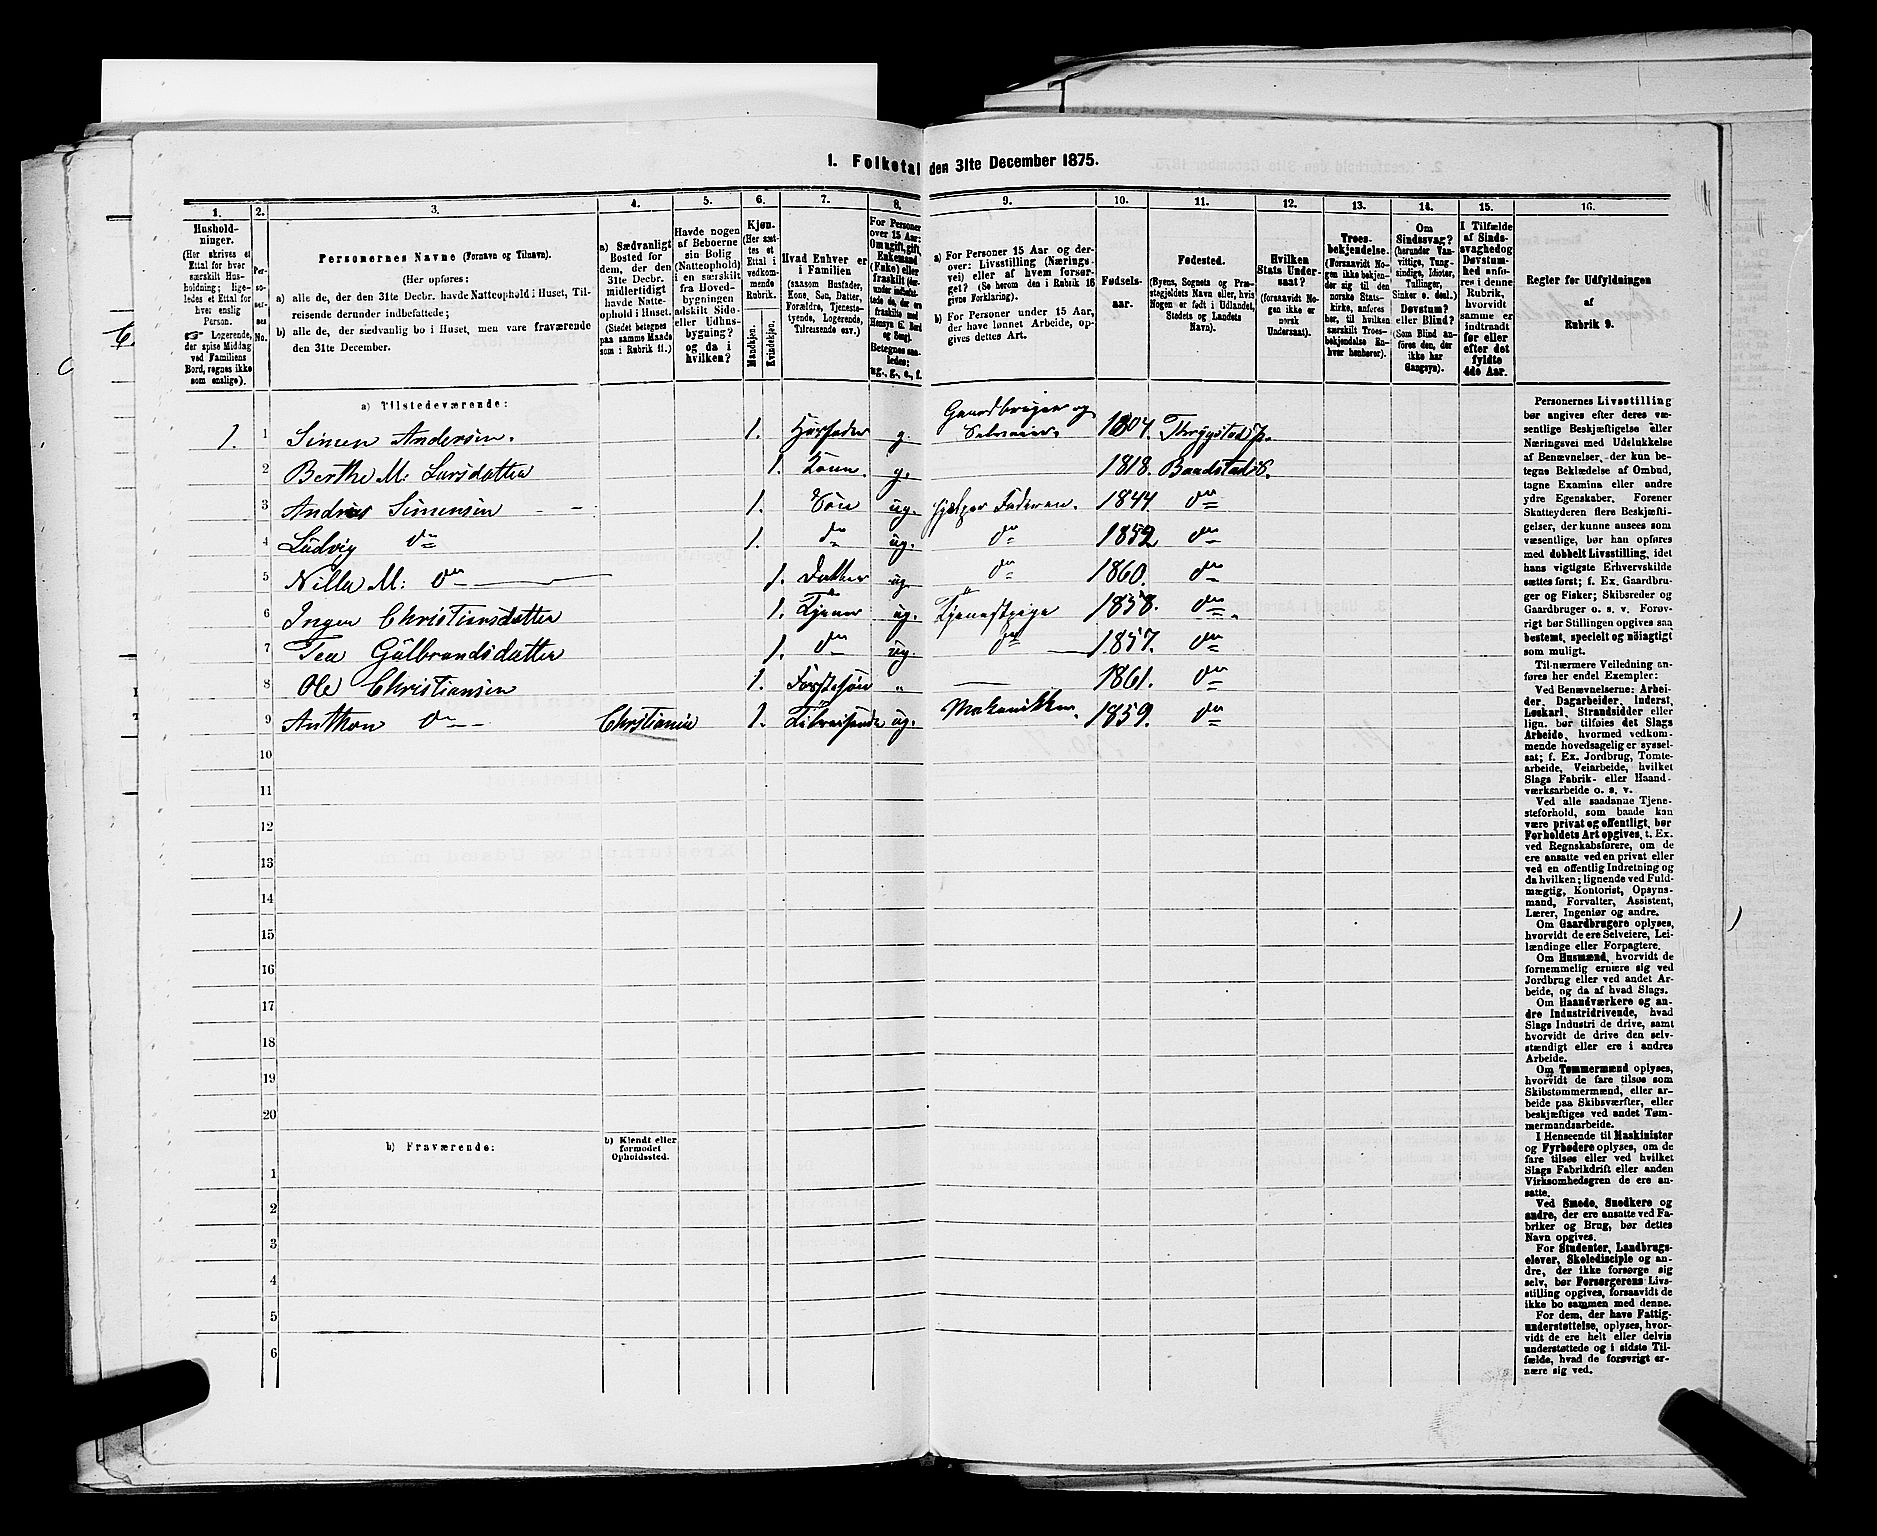 1. Folketal den 31te December 1875.
1. 2. 3. 4. 5. 6. 7. 8. 9. 10. 11. 12. 13. 14. 15. 16.
Hushold-
ninger.
(Her skrives et
Ettal for hver
særskilt Hus-
holdning; lige-
ledes et Ettal for
hver enslig
Person.
Logerende,
der spise Middag
ved Familiens
Bord, regnes ikke
som enslige).
Per-
so-
ner-
nes
No.
Personernes Navne (Fornavn og Tilnavn).
(Her opføres:
a) alle de, der den 31te Decbr. havde Natteophold i Huset, Til-
reisende derunder indbefattede;
b) alle de, der sædvanlig bo i Huset, men vare fraværende
den 31te December.
a) Sædvanligt
Bosted for
dem, der den
31te Decbr.
midlertidigt
havde Natte-
ophold i Huset.
(Stedet betegnes
paa samme Maade
som i Rubrik 11.)
Havde nogen
af Beboerne
sin Bolig
(Natteophold)
i en særskilt
fra Hoved-
bygningen
adskilt Side-
eller Udhus-
bygning?
og da i
hvilken?
Kjøn.
(Her sæt-
tes et
Ettal i
vedkom-
mende
Rubrik.
Mandkjøn.
Kvindekjøn.
Hvad Enhver er
i Familien
(saasom Husfader,
Kone, Søn, Datter,
Forældre, Tjeneste-
tyende, Logerende,
Tilreisende osv.)
For Personer
over 15 Aar:
Om ugift, gift,
Enkemand
(Enke) eller
fraskilt
Betegnes saa-
ledes:
ug., g., e., f.
a) For Personer 15 Aar og der-
over: Livsstilling (Nærings-
vei) eller af hvem forsør-
get? (Se herom den i Rubrik 16
givne Forklaring).
b) For Personer under 15 Aar,
der have lønnet Arbeide, op-
gives dettes Art.
Fødsels-
aar.
Fødested.
(Byens, Sognets og Præ-
stegjeldets Navn eller, hvis
Nogen er født i Udlandet,
Stedets og Landets
Navn).
Hvilken
Stats Under-
saat?
(forsaavidt No-
gen ikke er
norsk
Undersaat).
Troes-
bekjendelse.
(Forsaavidt No-
gen ikke bekjen-
der sig til den
norske Stats-
kirke, anføres
her, til hvilken
særskilt Troes-
bekjendelse En-
hver henhører).
Om
Sindssvag?
(herunder Van-
vittige, Tung-
sindige, Idioter,
Tullinger,
Sinker o. desl.)
Døvstum?
eller Blind?
(Som Blind an-
føres den, der
ikke har
Gangsyn).
I Tilfælde
af Sinds-
svaghed og
Døvstum-
hed anfø-
res i denne
Rubrik,
hvorvidt
samme er
indtraadt
før eller
efter det
fyldte
4de Aar.
Regler for Udfyldningen
af
Rubrik 9.
a) Tilstedeværende:
1. 1 Simen Andersen. 1. Husfader g. Gaardbruger og Selveier. 1804. Thrygstad P.
2 Berthe M: Larsdatter 1. Kone. g. 1818. Baadstad S.
3 Andrias Simensen 1. Søn ug. hjelper Faderen. 1844. do
4 Ludvig do 1. do ug. do 1852 do
5 Nilla M: do 1. Datter ug. do 1860. do
6 Inger Christiansdatter 1. Tjener ug. Tjenestpige 1858. do
7 Tea Gulbrandsdatter 1. do ug. do 1857. do
8 Ole Christiansen 1. Fostesøn " 1861. do
9 Anthon do Christiania 1. Tilreisende ug. Mekaniker. 1859. do
10
11
12
13
14
15
16
17
18
19
20
b) Fraværende:
b) Kjendt eller
formodet
Opholdssted.
1
2
3
4
5
6
Personernes Livsstilling
bør angives efter deres væ-
sentlige Beskjæftigelse eller
Næringsvei med Udelukkelse
af Benævnelser, der kun be-
tegne Beklædelse af Ombud,
tagne Examina eller andre
ydre Egenskaber. Forener
Skatteyderen flere Beskjæfti-
gelser, der kunne ansees som
væsentlige, bør han opføres
med dobbelt Livsstilling, idet
hans vigtigste Erhvervskilde
sættes først; f. Ex. Gaardbru-
ger og Fisker; Skibsreder og
Gaardbruger o. s. v. Forøv-
rigt bør Stillingen opgives saa
bestemt, specielt og nöiagtigt
som muligt.
Til nærmere Veiledning an-
føres her endel Exempler:
Ved Benævnelserne: Arbei-
der, Dagarbeider, Inderst,
Løskarl, Strandsidder eller
lign. bør tilføies det Slags
Arbeide, hvormed vedkom-
mende hovedsagelig er syssel-
sat; f. Ex. Jordbrug, Tomte-
arbeide, Veiarbeide, hvilket
Slags Fabrik- eller Haand-
værksarbeide o. s. v.
Ved alle saadanne Tjene-
steforhold, som baade kan
være privat og offentligt, bør
Forholdets Art opgives, t. Ex.
ved Regnskabsførere, om de
ere ansatte ved en privat eller
ved en offentlig Indretning og
da hvilken; lignende ved Fuld-
mægtig, Kontorist, Opsyns-
mand, Forvalter, Assistent,
Lærer, Ingeniør og andre.
Om Gaardbrugere oplyses,
hvorvidt de ere Selveiere, Lei-
lændinge eller Forpagtere.
Om Husmænd, hvorvidt de
fornemmelig ernære sig ved
Jordbrug eller ved andet Ar-
beide, og da af hvad Slags.
Om Haandværkere og an-
dre Industridrivende, hvad
Slags Industri de drive, samt
hvorvidt de drive den selv-
stændigt eller ere i andres
Arbeide.
Om Tømmermænd oplyses,
hvorvidt de fare tilsøs som
Skibstømmermænd, eller ar-
beide paa Skibsværfter, eller
beskjæftiges ved andet Tøm-
mermandsarbeide.
I Henseende til Maskinister
og Fyrbødere oplyses, om de
fare tilsøs eller ved hvilket
Slags Fabrikdrift eller anden
Virksomhedsgren de ere an-
satte.
Ved Smede, Snedkere og
andre, der ere ansatte ved Fa-
briker og Brug, bør dettes
Navn opgives.
For Studenter, Landbrugs-
elever, Skoledisciple og an-
dre, der ikke forsørge sig
selv, bør Forsørgerens Livs-
stilling opgives, forsaavidt de
ikke bo sammen med denne.
For dem, der have Fattig-
understøttelse, oplyses, hvor-
vidt de ere helt eller delvis
understøttede og i sidste Til-
fælde, hvad de forøvrigt er-
nære sig ved.